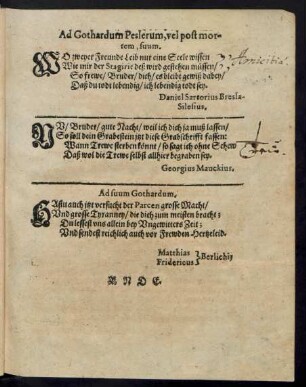 Ad Gothardum Peslerum, vel post mor-
tem, suum.
WO zweyer Freunde Leib nur eine Seele wissen
Wie mir der Stagirie deß wird gestehen müssen/
So frewe/Bruder/dich/es bleibt gewiß dabey/
Daß du todt lebendig/ich lebendig todt sey.
Daniel Sartorius Bresla-
Silesius.
NU/Bruder/gute Nacht/weil ich dich ja muß lassen/
So soll dein Grabestein itzt diese Grabschrifft fassen:
Wann Trewe sterben könnt/so sagt ich ohne Schew
Daß wol die Trewe selbst allhier begraben sey.
Georgius Mauckius.
Ad suum Gothardum.
HAstu auch itzt versucht der Parcen grosse Macht/
Und grosse Tyranney/die dich zum meisten bracht;
Du lessest uns allein bey Ungewitters Zeit;
Und sendest reichlich auch vor Frewden Hertzeleid.
Matthias
Fridericus } Berlichij
ENDE.